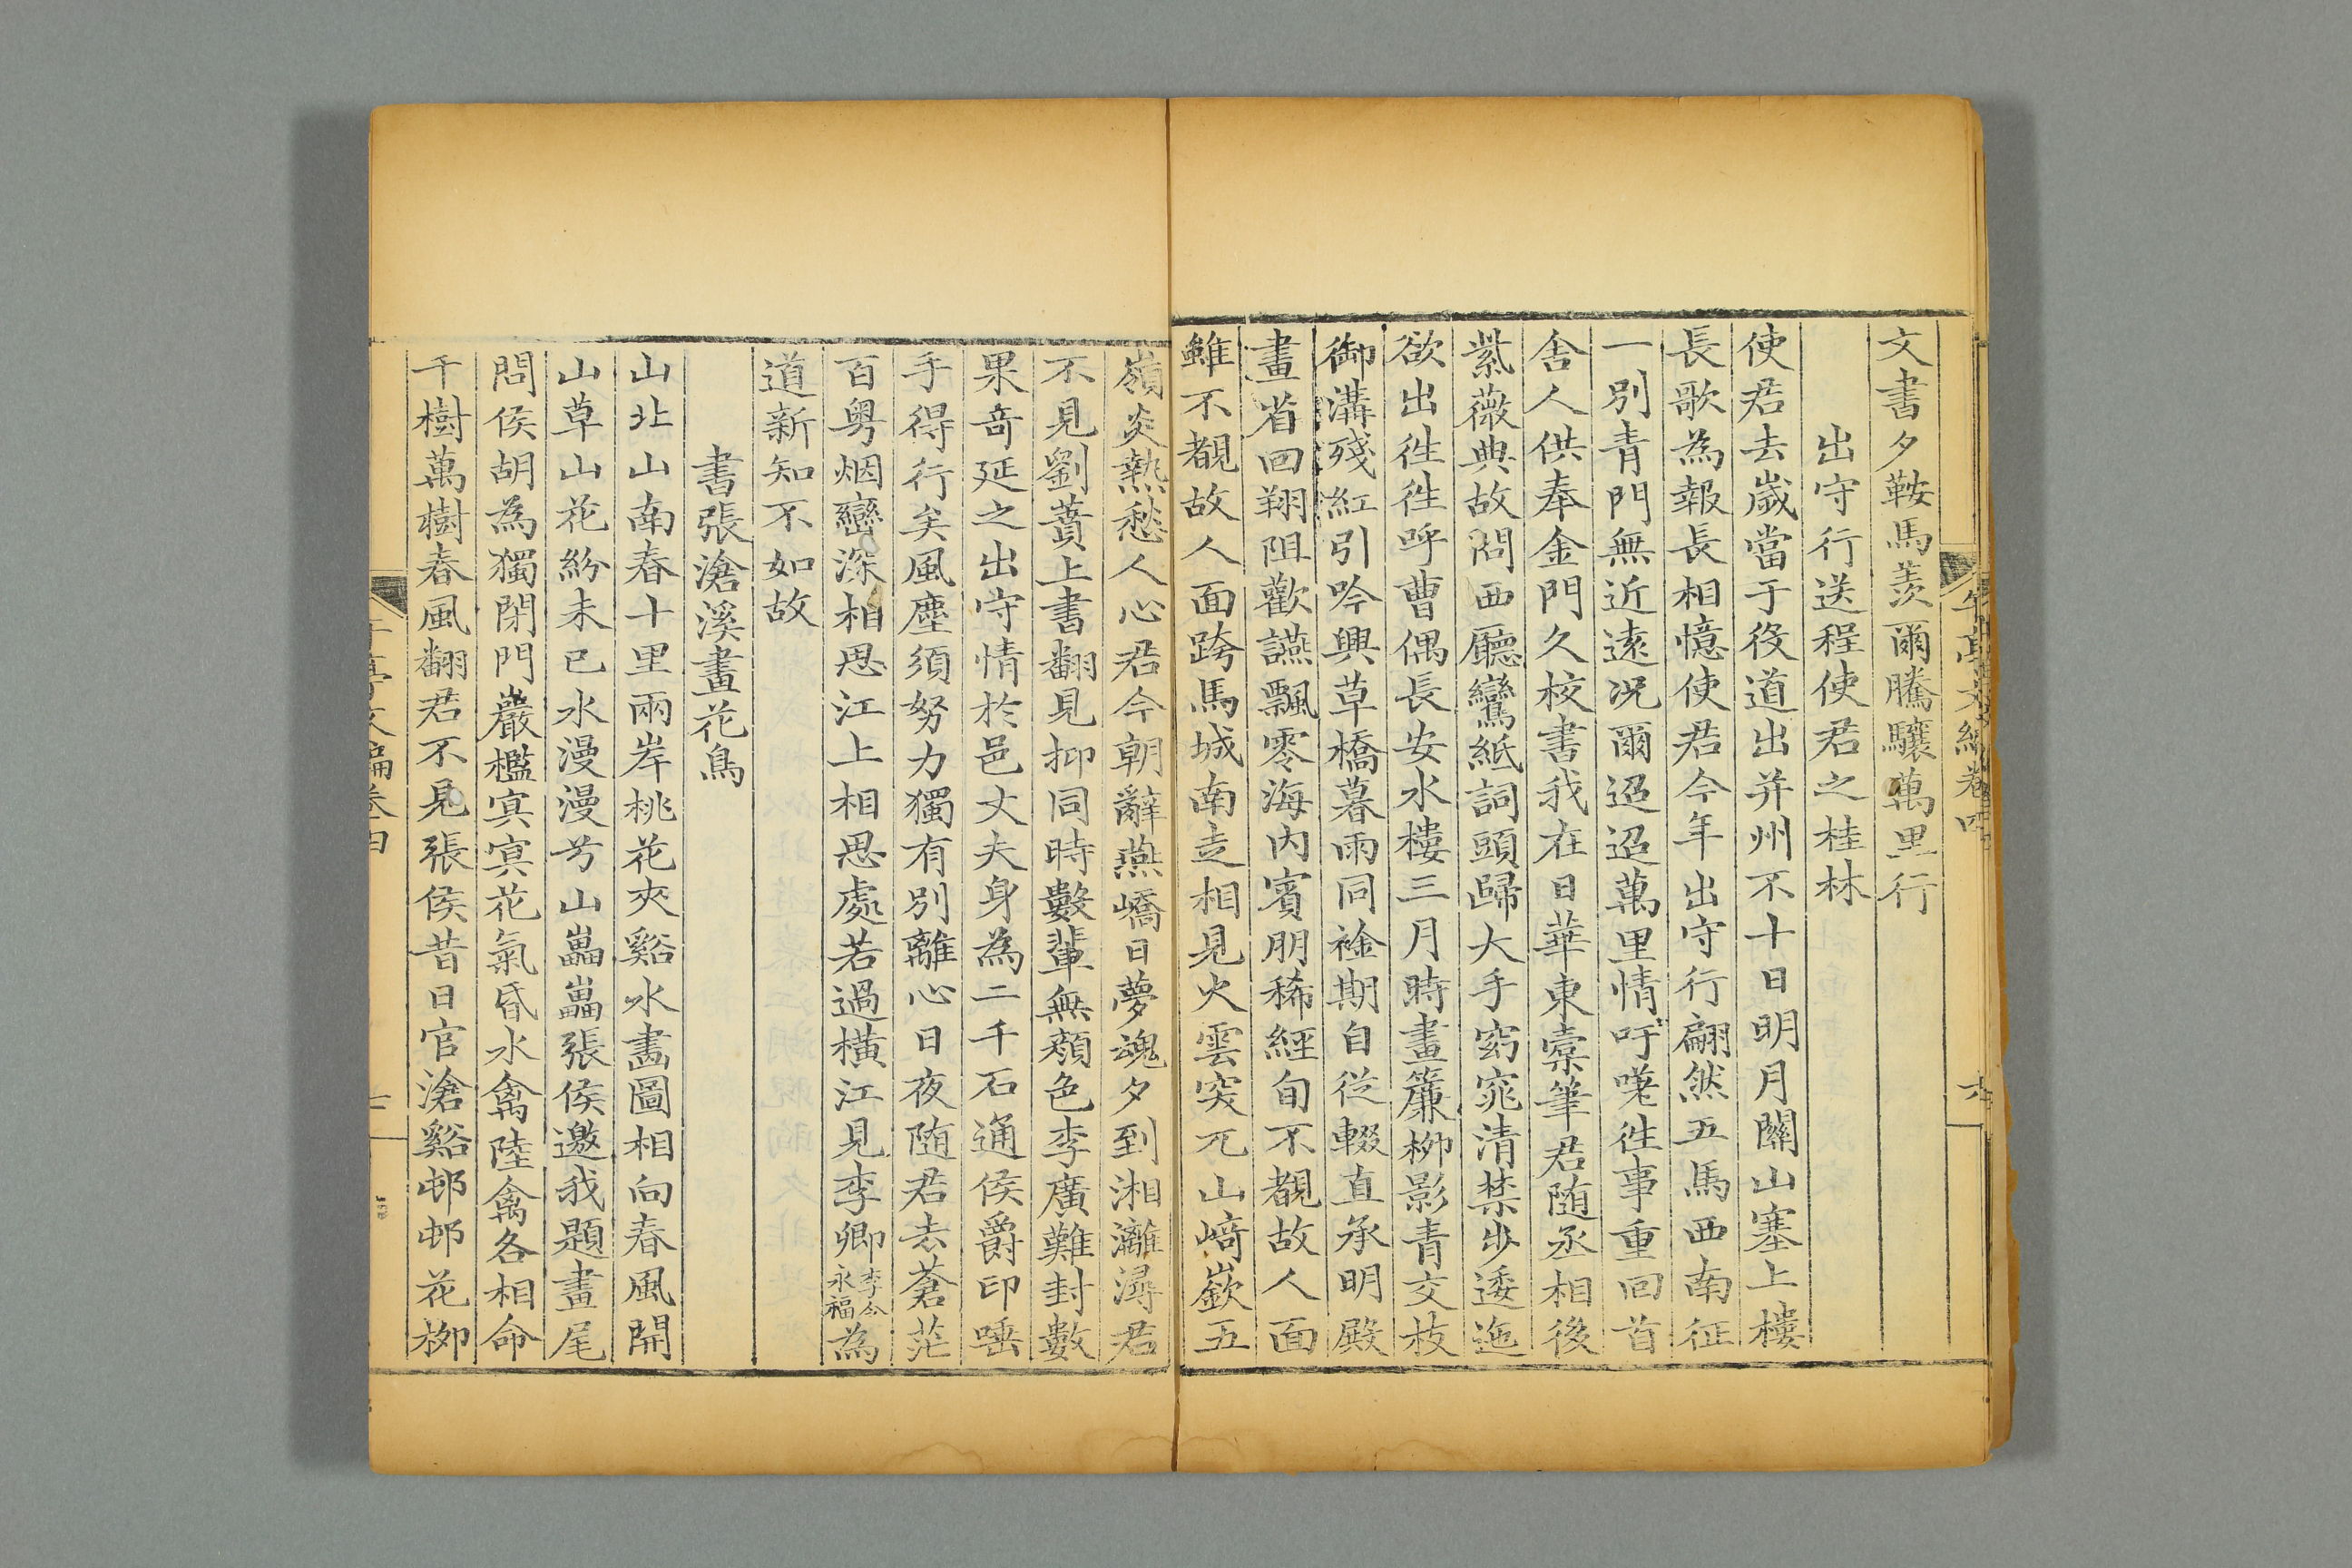 午亭文編卷四
六
文書夕鞍馬羨爾騰驤萬里行
出守行送程使君之桂林
使君去嵗當于役道出并州不十日明月關山塞上樓
長歌為報長相憶使君今年出守行翩然五馬西南征
一別青門無近遠况爾迢迢萬里情吁嗟徃事重回首
舍人供奉金門久校書我在日華東槖筆君随丞相後
紫薇典故問西廳鸞紙詞頭歸大手窈窕清禁步逶迤
欲出徃徃呼曹偶長安水樓三月時畫簾桞影青交枝
御溝殘紅引吟興草橋暮雨同襘期自從輟直承明殿
畫省回翔阻歡讌飄零海内賓朋稀經旬不覩故人面
雖不覩故人面跨馬城南走相見火雲突兀山﨑嶔五
嶺炎熱愁人心君今朝辭燕嶠日夢魂夕到湘灕潯君
不見劉蕡上書翻見抑同時數輩無顔色李廣難封數
果竒延之出守情於邑丈夫身為二千石通侯爵印唾
手得行矣風塵須努力獨有別離心日夜随君去蒼茫
百粤烟巒深相思江上相思處若過橫江見李卿李令永福為
道新知不如故
書張滄溪畫花鳥
山北山南春十里兩岸桃花夾谿水畵圖相向春風開
山草山花紛未已水漫漫兮山畾畾張侯邀我題畫尾
問侯胡為獨閉門巖檻㝠㝠花氣昏水禽陸禽各相命
千樹萬樹春風翻君不見張侯昔日官滄谿邨邨花桞
午亭文編卷四